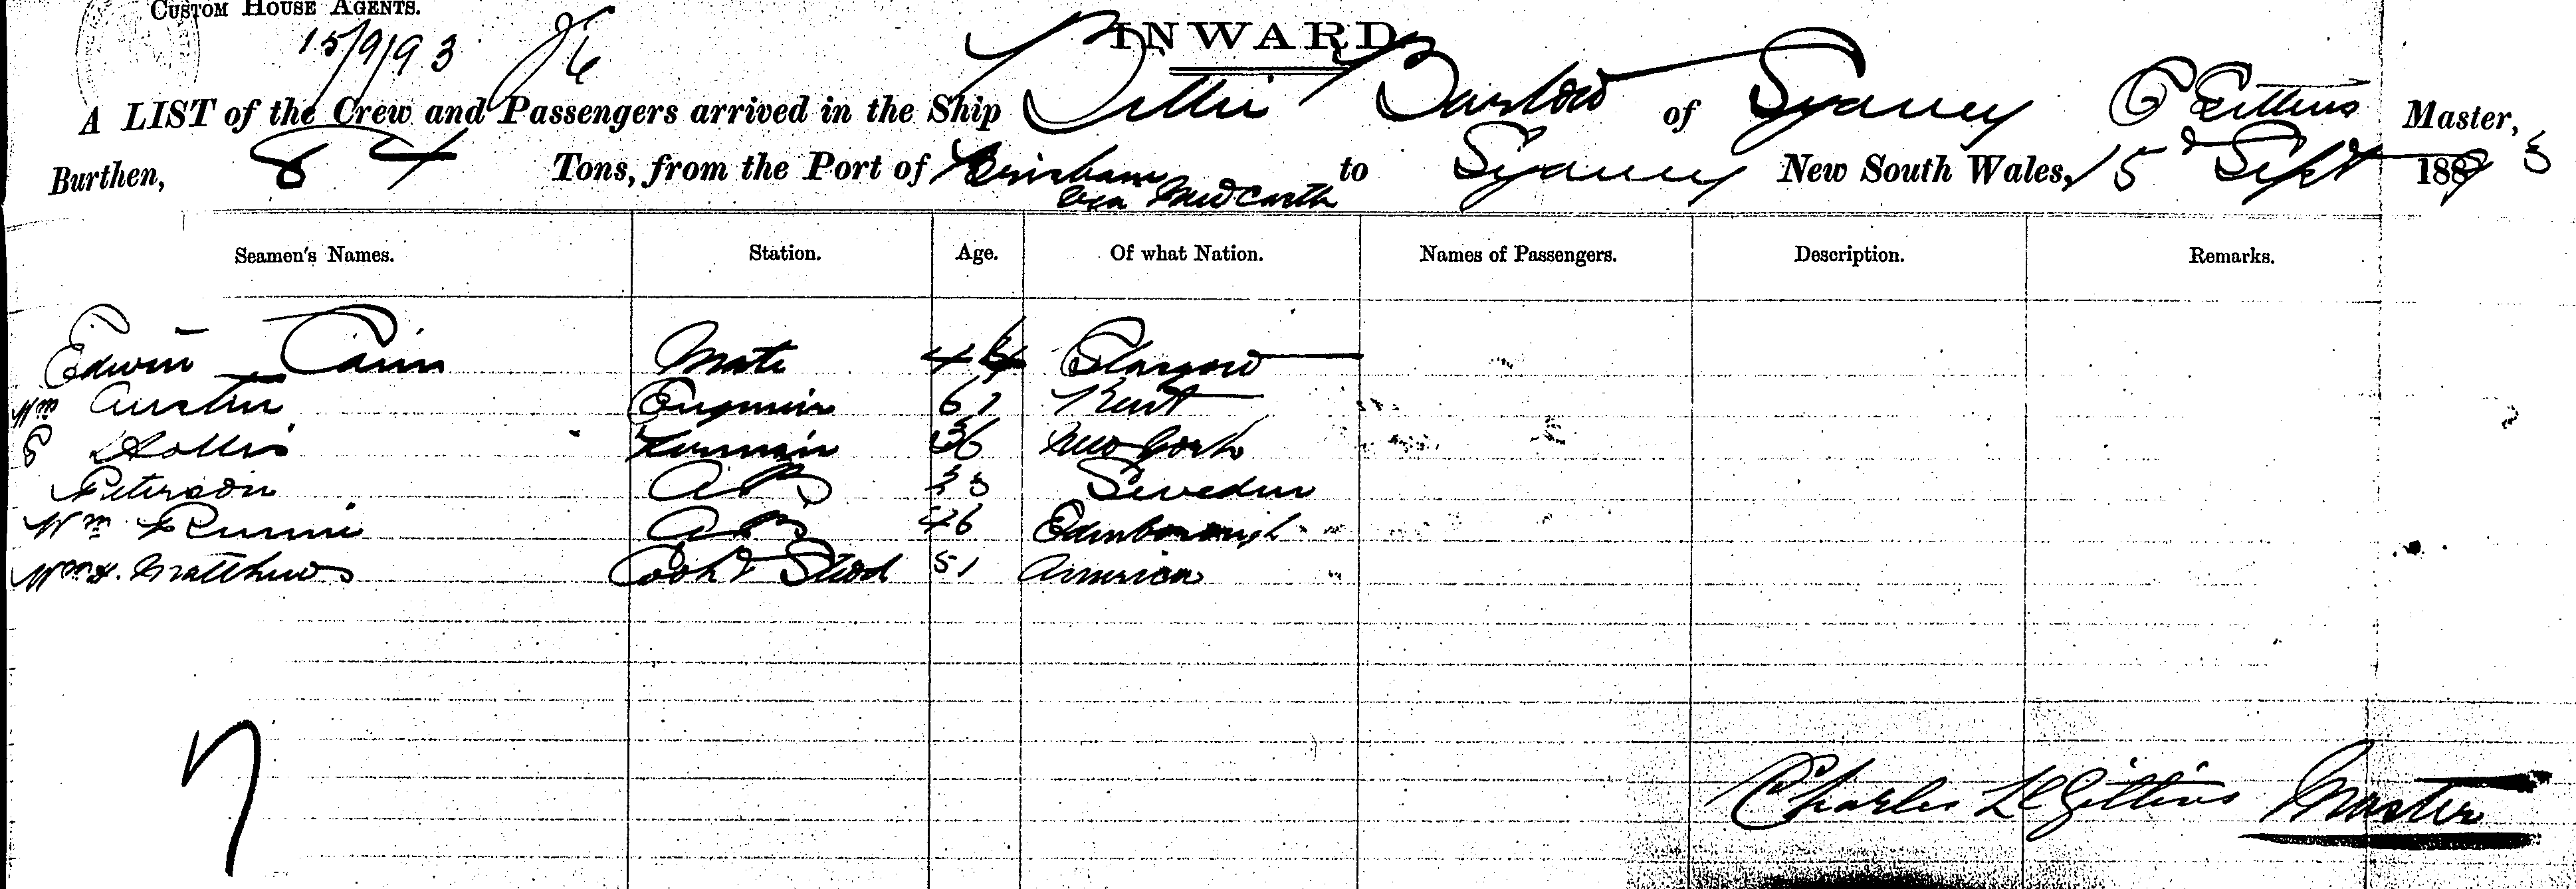 CUSTOM HOUSE AGENTS.
15/9/93
INWARD
A LIST of the Crew and Passengers arrived in the Ship Billie Barlow of Sydney C Gittins Master,
Burthen, 84 Tons, from the Port of Brisbane via Newcastle to Sydney New South Wales, 15th Sept 1893
Seamen's Names. Station. Age. Of what Nation. Names of Passengers. Description. Remarks.
Edwin Cain Mate 44 Glasgow
Wm Austin Engineer 61 Kent
Hollis Fireman 36 New York
Peterson AB 33 Sweden
Wm Rennie AB 46 Edinborough
Wm H. Matthews Cook & Stwd 51 America
7
Charles Gittins Master